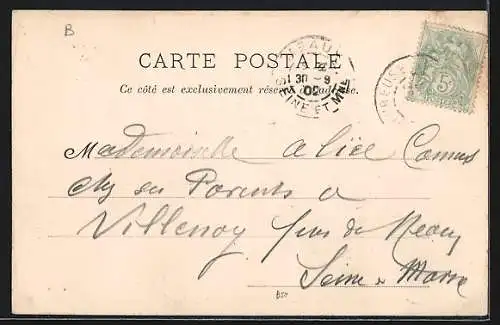 B
CARTE POSTALE
Ce côté est exclusivement réservé à l'adresse
MEAUX
30 - 9
05
SEINE ET MNE
5
Mademoiselle Alice Camus
chez ses Parents a
Villenoy près de Meaux
Seine & Marne